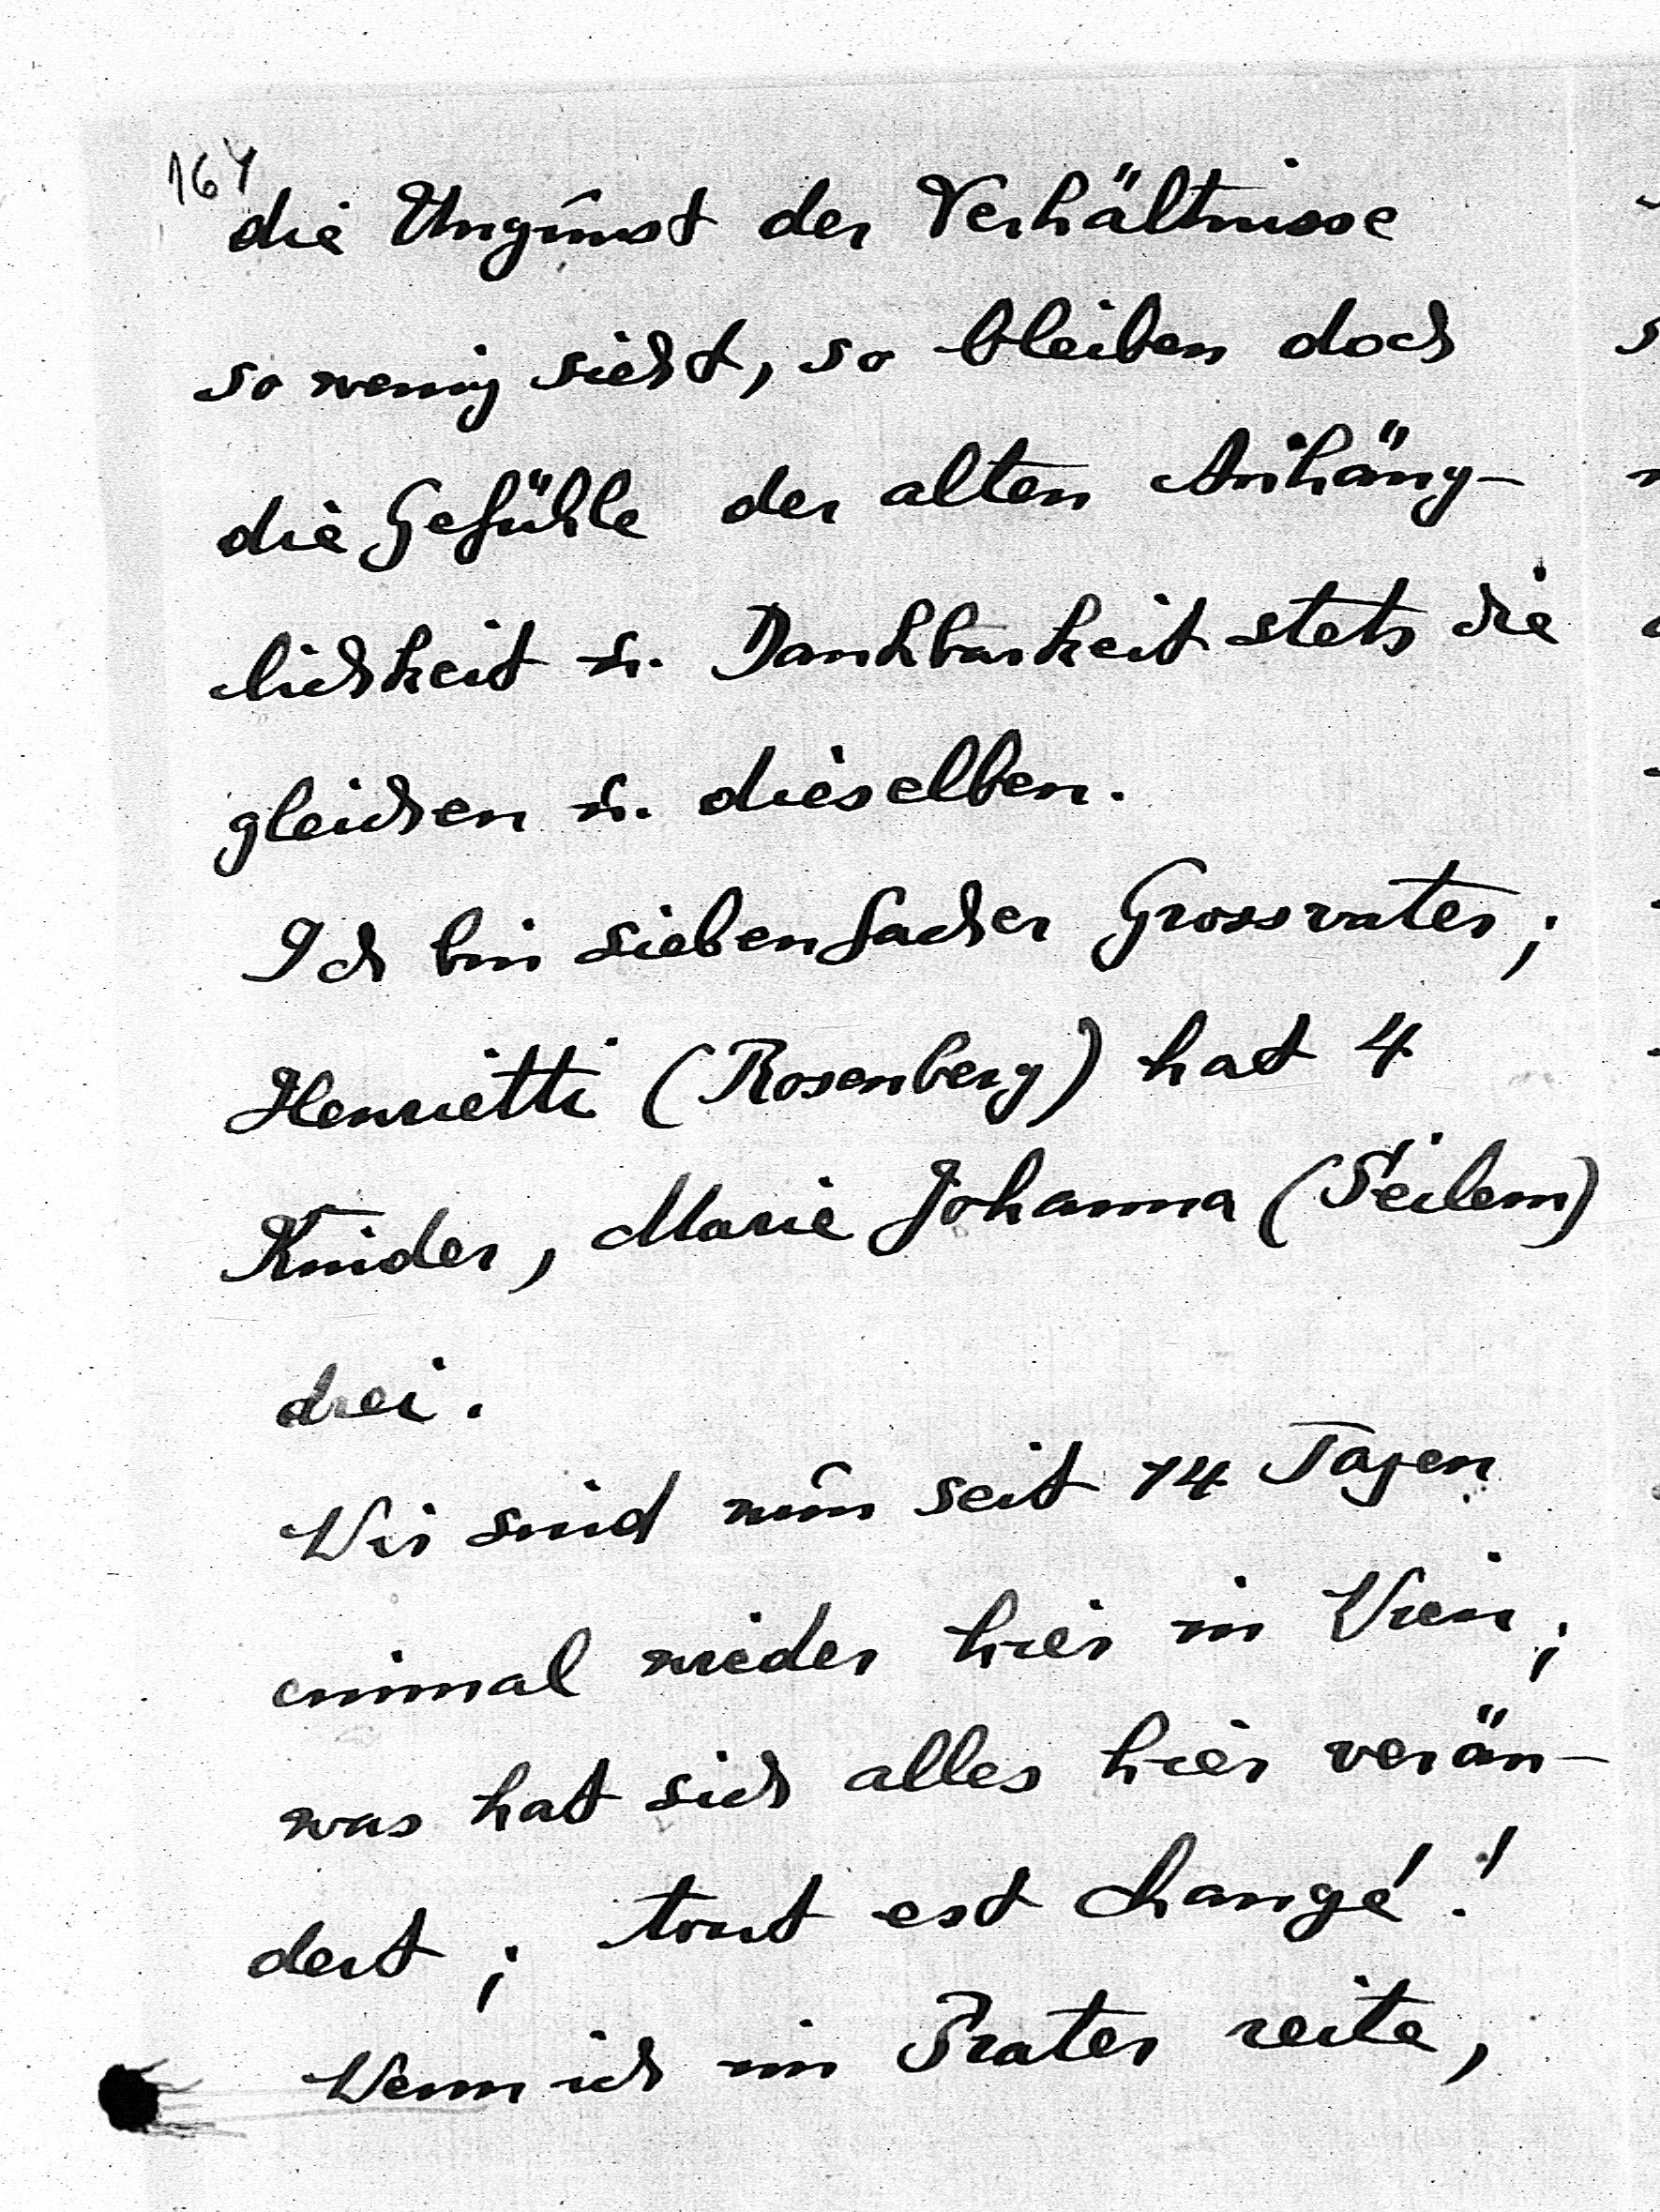 164
die Ungunst der Verhältnisse
so wenig sieht, so bleiben doch
die Gefühle der alten Anhäng-
lichkeit u. Dankbarkeit stets die
gleichen u. dieselben.
Ich bin siebenfacher Grossvater;
Henrietti (Rosenberg) hat 4
Kinder, Marie Johanna (Seilern)
drei.
Wir sind nun seit 14 Tagen
einmal wieder hier in Wien;
was hat sich alles hier verän-
dert; tout est changé!
Wenn ich im Prater reite,